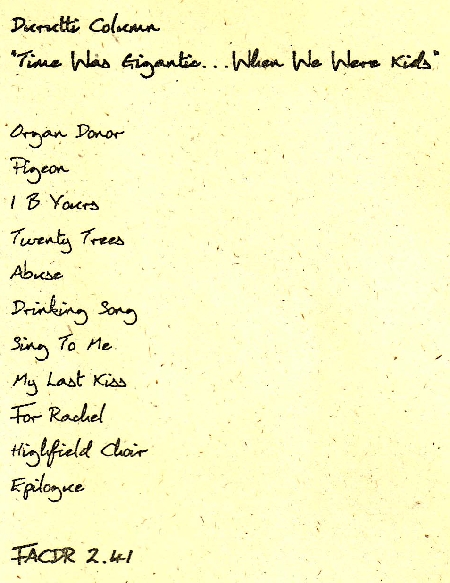 Durutti Column
"Time Was Gigantic...When We Were Kids"
Organ Donor
Pigeon
I B Yours
Twenty Trees
Abuse
Drinking Song
Sing To Me
My Last Kiss
For Rachel
Highfield Choir
Epilogue
FACDR 2.41